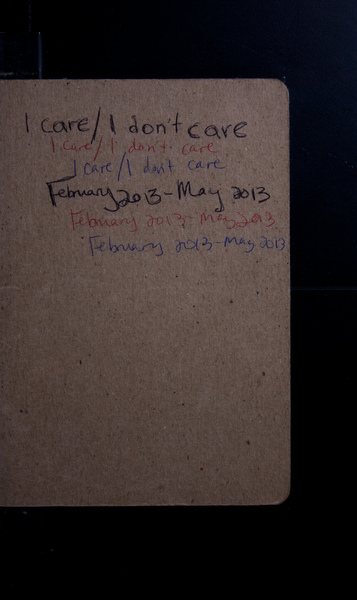 I care/I don't care
I care/I don't care
I care/I don't care
February 2013-May 2013
February 2013-May 2013
February 2013-May 2013